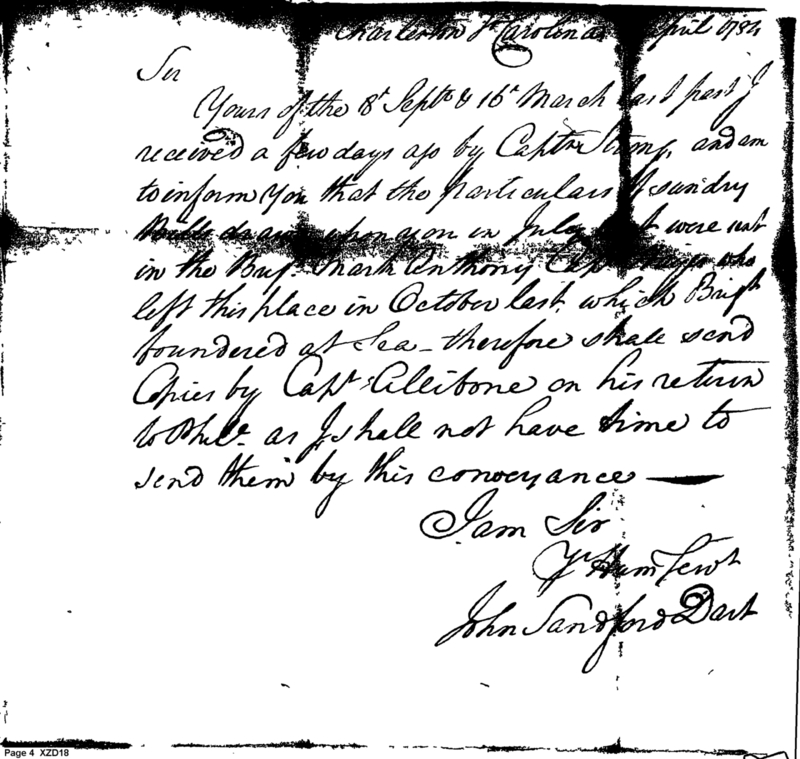 Charleston So Carolina April 1784
Sir
Yours of the 8t Septr & 16t March last past I
received a few days ago by Captn Strong, and am
to inform you that the particulars of sundry
Bills drawn upon you in July last were sent
in the Brigt Mark Anthony Capt who
left this place in October last, which Brigt
foundered at Sea - therefore shall send
Copies by Capt Allibone on his return
to Phila. as I shall not have time to
send them by this conveyance —
I am Sir
Yr Hum Servt
John Sandford Dart
Page 4 XZD18